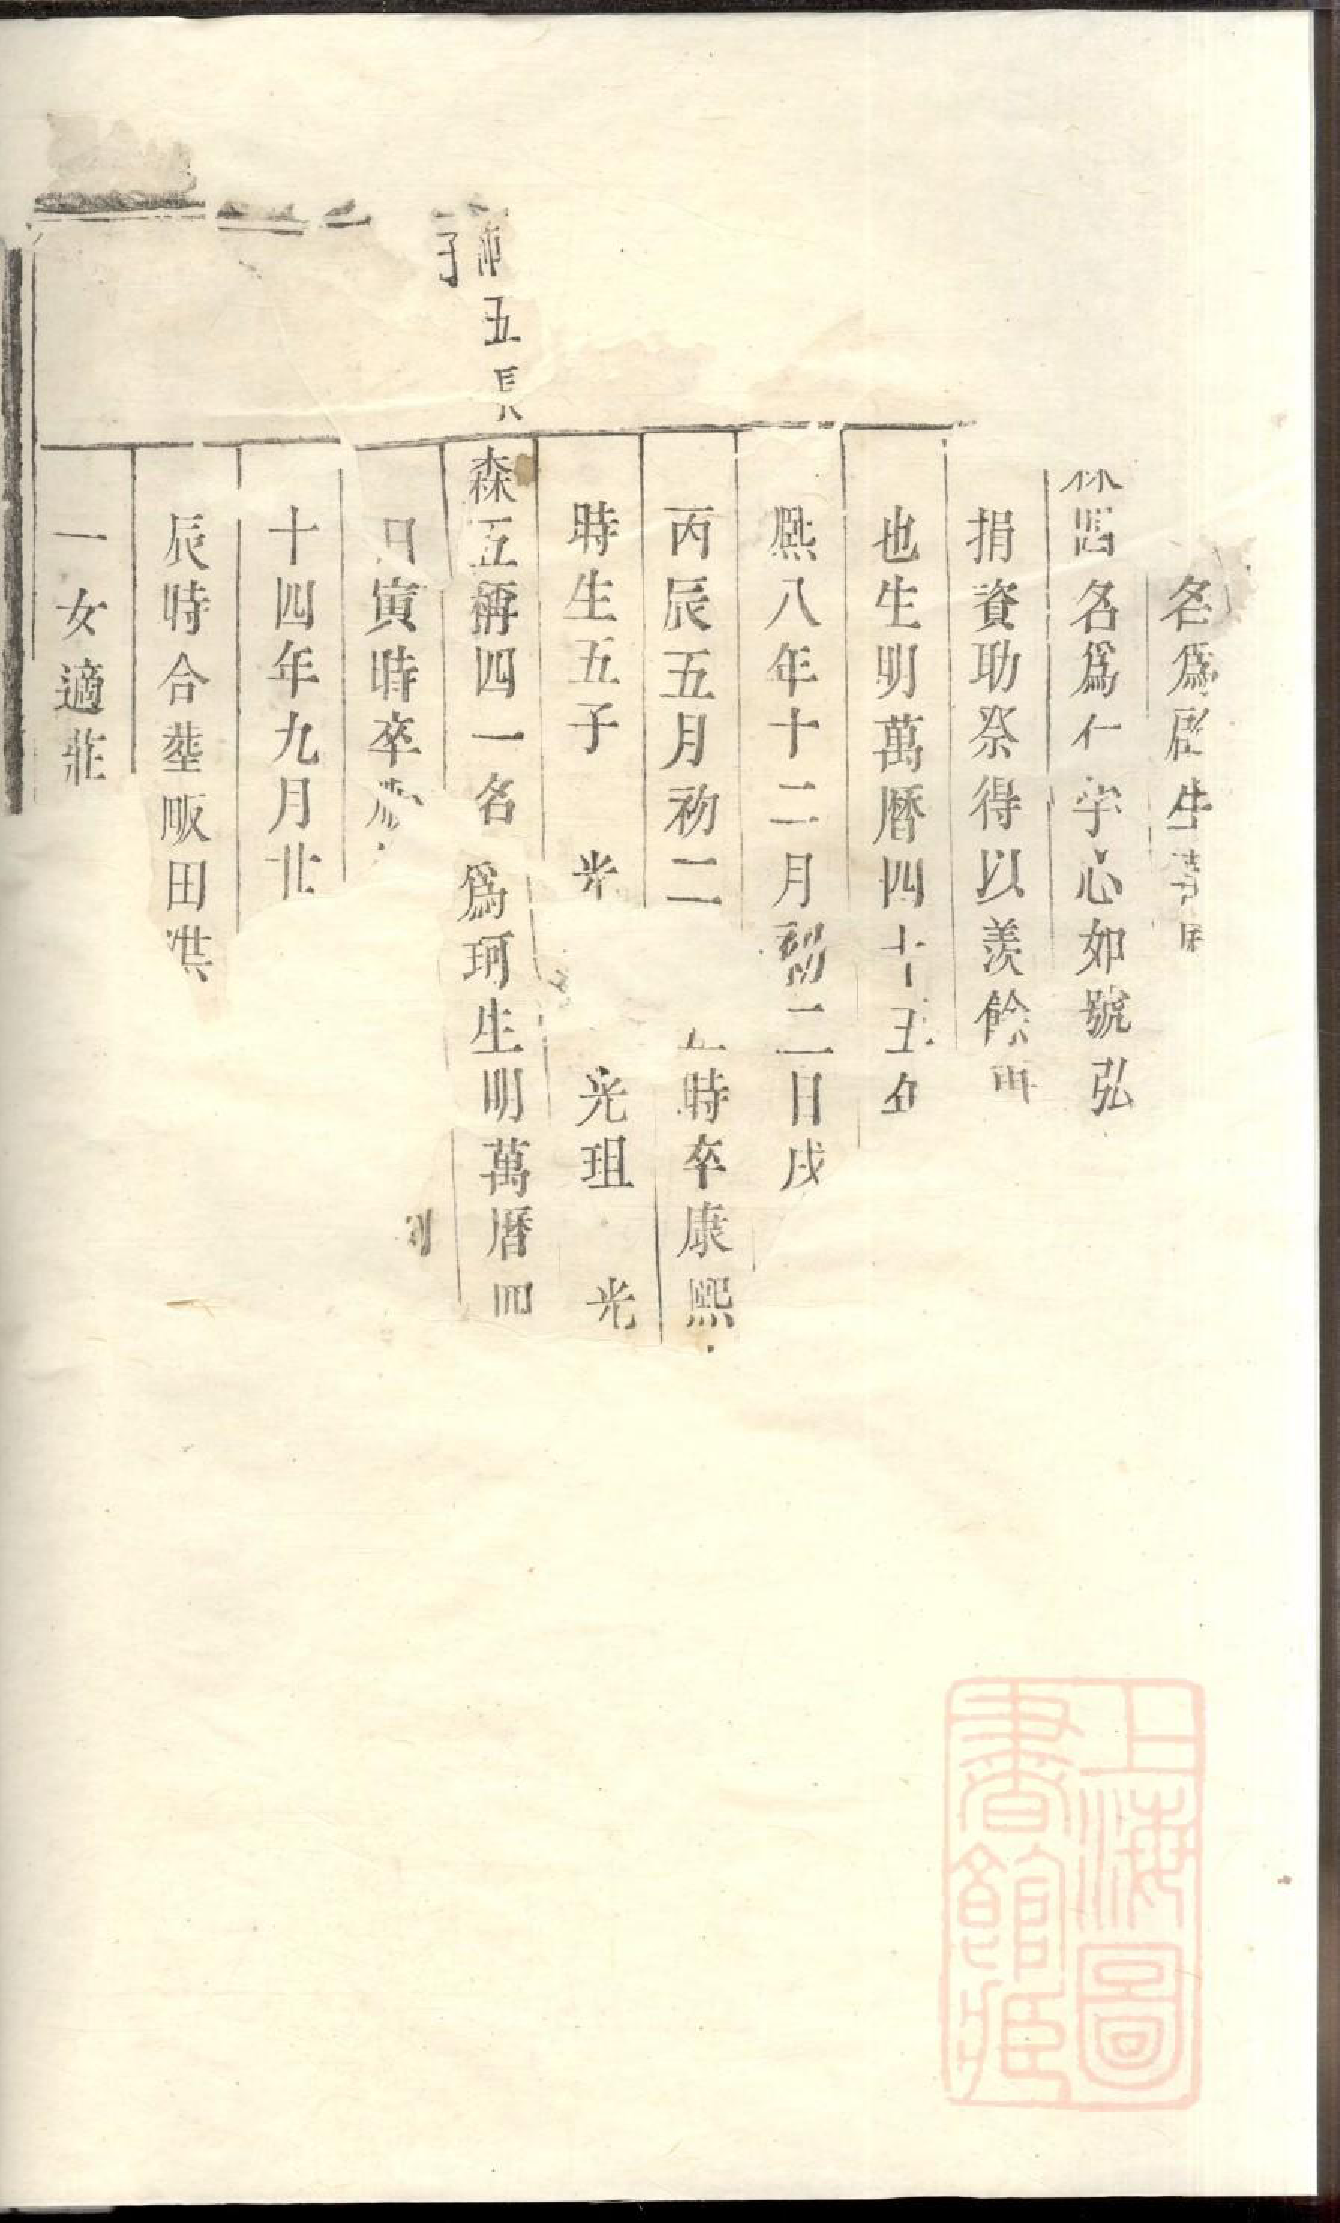 名爲啟生
名爲仁字心如號弘
捐資助祭得以羨餘再
也生明萬曆四十五年
熙八年十二月初二日戌
丙辰五月初二
時卒康熙
時生五子 光
光珇 光
五長
森五稱四一名爲珂生明萬曆四
子
日寅時卒
十四年九月廿
辰時合塟畈田洪
一女適莊
上海圖
書館藏